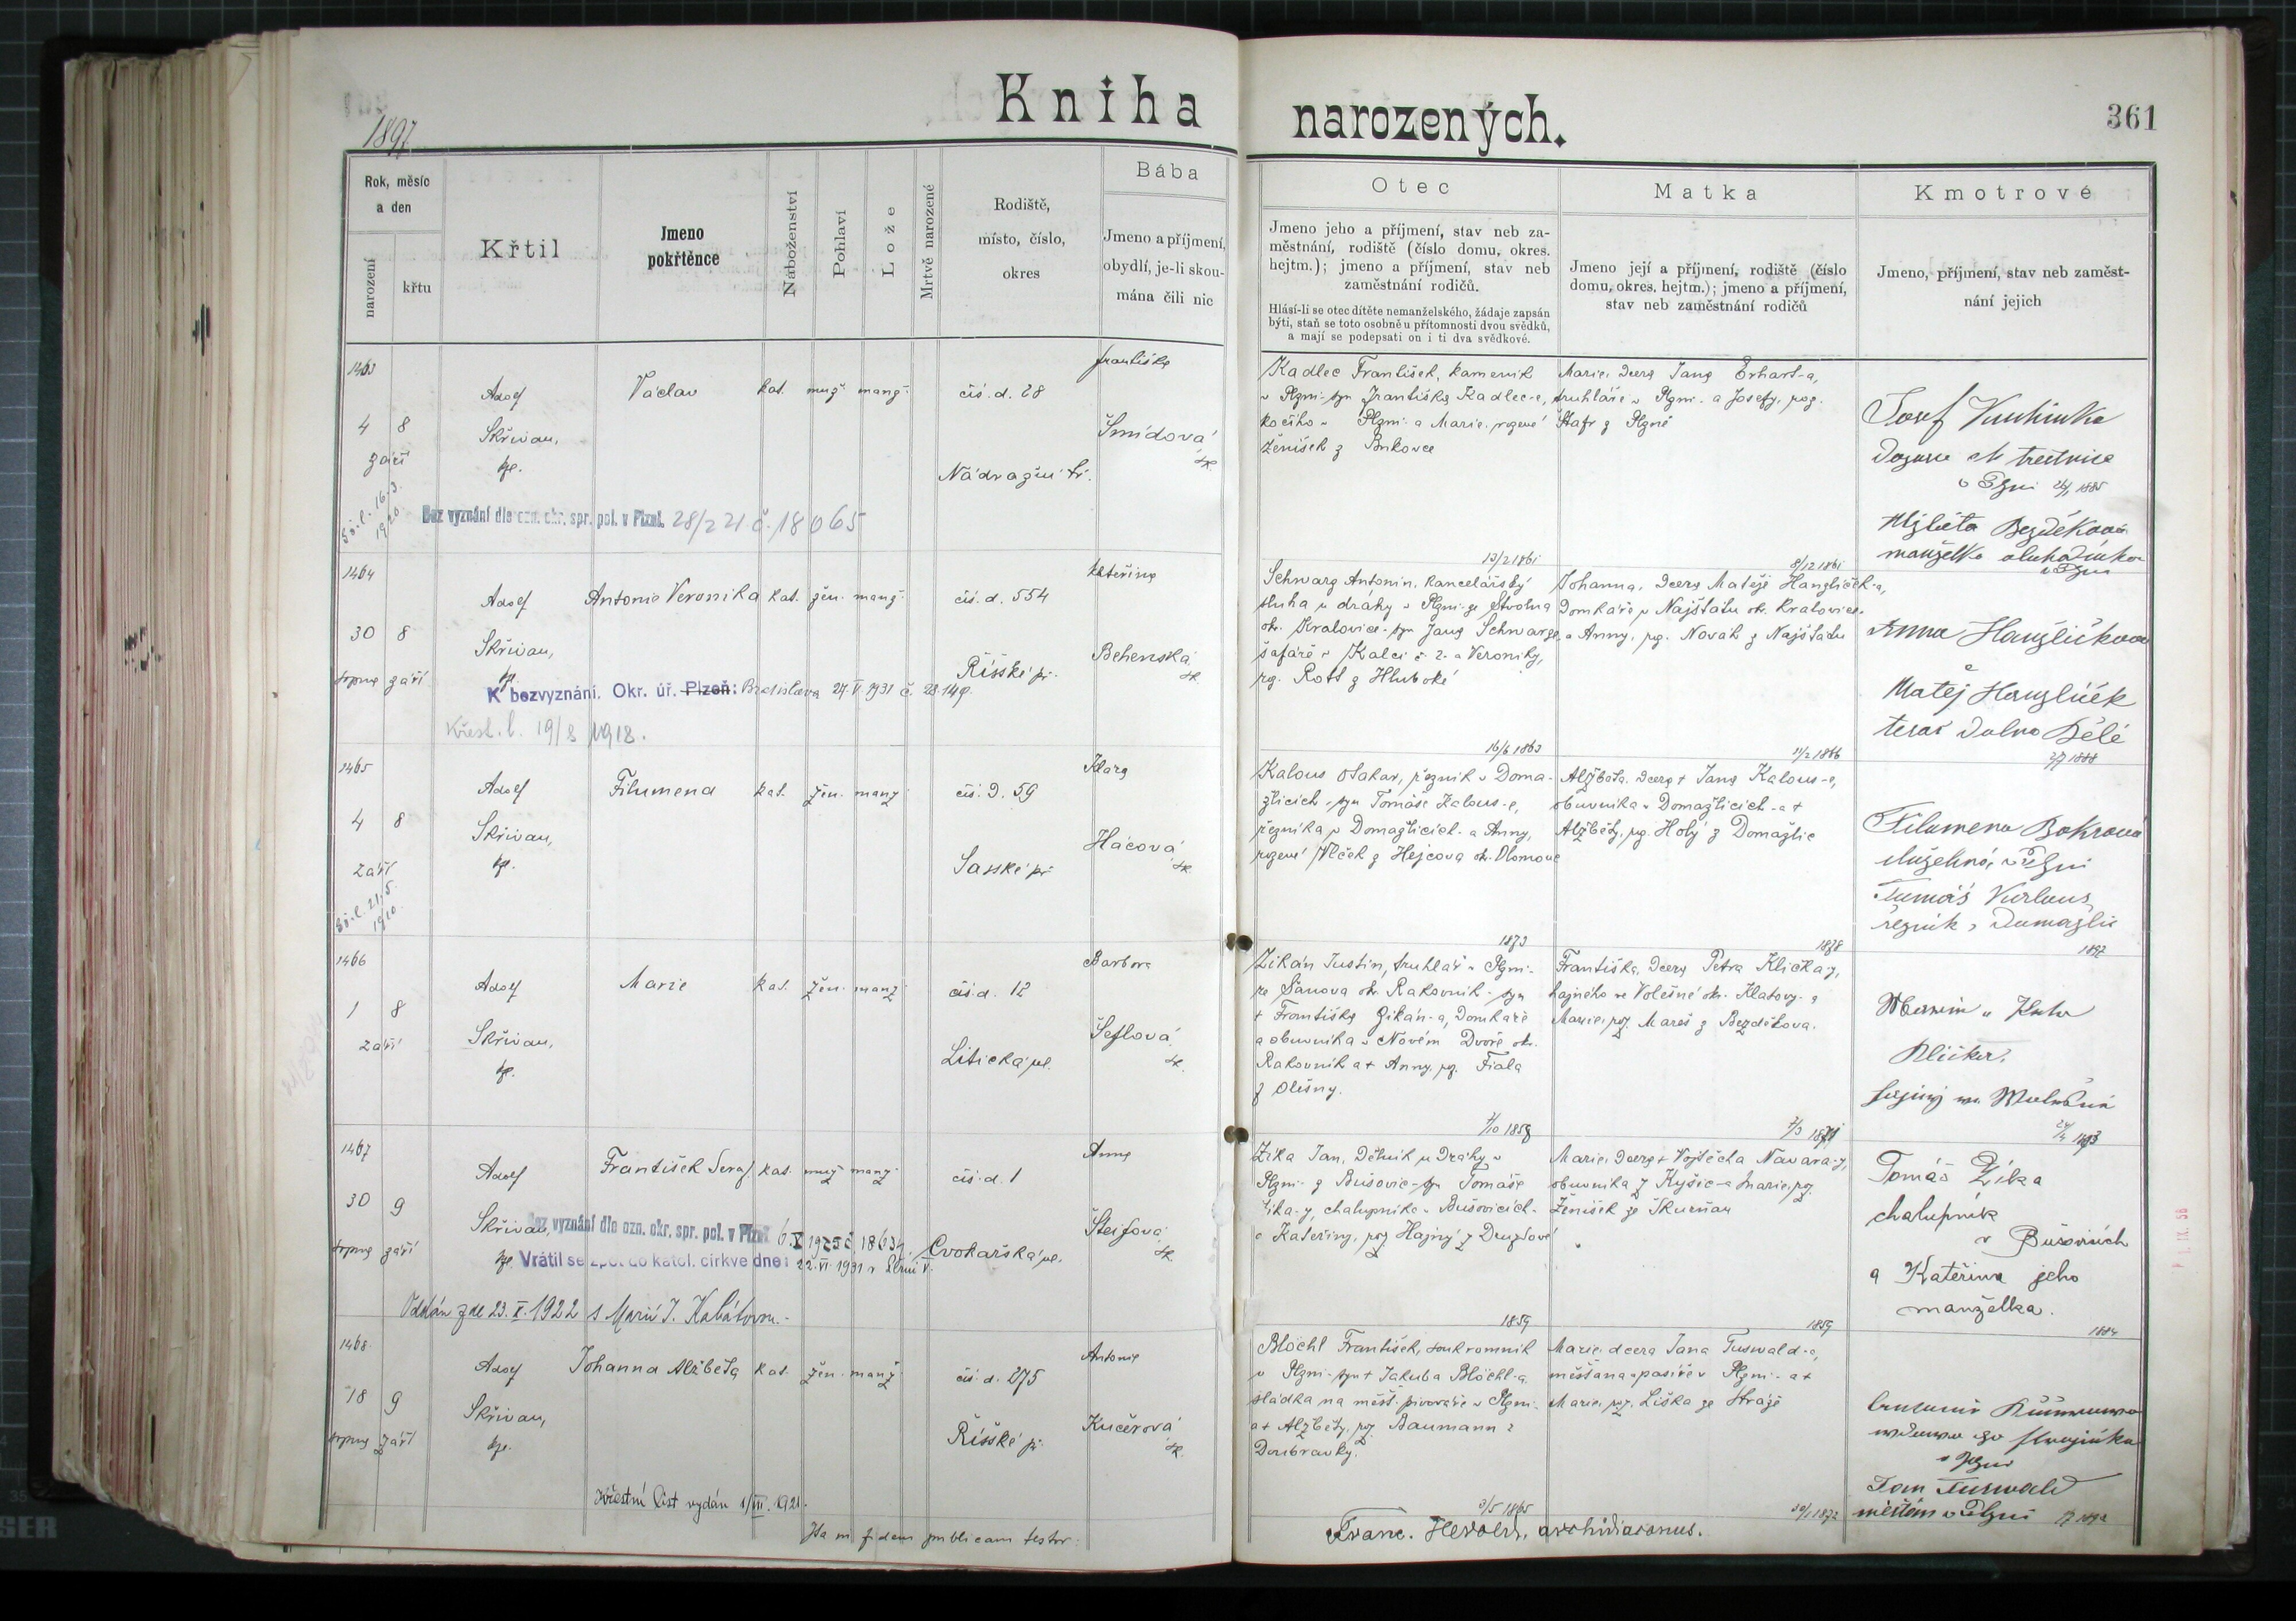 Kniha narozených.
361
1897
Rok, měsíc a den
narození
křtu
Křtil
Jmeno pokřtěnce
Náboženství
Pohlaví
Lože
Mrtvě narozené
Rodiště, místo, číslo, okres
Bába
Jmeno a příjmení, obydlí, je-li skoumána čili nic
Otec
Jmeno jeho a příjmení, stav neb zaměstnání, rodiště (číslo domu, okres. hejtm.); jmeno a příjmení, stav neb zaměstnání rodičů.
Hlásí-li se otec dítěte nemanželského, žádaje zapsán býti, staň se toto osobně u přítomnosti dvou svědků, a mají se podepsati on i ti dva svědkové.
Matka
Jmeno její a příjmení, rodiště (číslo domu, okres. hejtm.); jmeno a příjmení, stav neb zaměstnání rodičů
Kmotrové
Jmeno, příjmení, stav neb zaměstnání jejich
1463
4 8
září
Adolf
Skřivan,
Václav kat. muž. manž.
čís. d. 28
Nádražní tř.
Františka
Šmídová
Kadlec František, kameník
v Plzni - syn Františka Kadlec-e,
kočího v Plzni a Marie, rozené
Ženíšek z Bukovce
Marie, dcera Jana Erhart-a,
truhláře v Plzni - a Josefy, roz.
Štafr z Plzně
Josef
v Plzni 1885
Alžběta Bezděková
manželka
Bez vyznání dle ozn. okr. spr. pol. v Plzni. 28/2 21 č. 18065
13/2 1861
8/12 1861
1464
30 8
srpna září
Adolf
Skřivan,
Antonie Veronika kat. žen. manž.
čís. d. 554
Říšské př.
Kateřina
Behenská
Schwarz Antonín, kancelářský
sluha u dráhy v Plzni - ze Stvolna
okr. Kralovice - syn Jana Schwarze,
šafáře v Kalci č. 2. a Veroniky,
roz. Rott z Hluboké
Johanna, dcera Matěje Hanzlíček-a,
domkáře v Najštátu ok. Kralovice.
a Anny, roz. Novák z Najštátu
Anna Hanzlíčkova
Matěj Hanzlíček
tesař Dolno Bělé
1888
K bezvyznání. Okr. úř. Plzeň: Bratislava 27. V. 1931 č. 28.149.
Křest. l. 19/8 1918.
16/6 1863
11/2 1866
1465
4 8
září
Adolf
Skřivan,
Filumena kat. žen. manž.
čís. d. 59
Saské př.
Klara
Hácová
Kalous Otakar, řezník v Doma-
žlicích - syn Tomáše Kalous-e,
řezníka v Domažlicích - a Anny,
rozené Vlček z Hejcova ok. Olomouc
Alžběta, dcera + Jana Kalous-e,
obuvníka v Domažlicích - a +
Alžběty, roz. Holý z Domažlic
Filomena Bokrová
v Plzni
Tomáš Kalous
řezník z Domažlic
1897
1873
1878
1466
1 8
září
Adolf
Skřivan,
Marie kat. žen. manž.
čís. d. 12
Litická ul.
Barbora
Šeflová
Zikán Justin, truhlář v Plzni -
ze Šanova okr. Rakovník - syn
+ Františka Zikán-a, domkáře
a obuvníka v Novém Dvoře okr.
Rakovník a + Anny, roz. Fiala
z Olešny.
Františka, dcera Petra Klička-y,
hajného ve Volešné okr. Klatovy - a
Marie, roz. Mareš z Bezděkova.
Klička,
1/10 1858
1893
1467
30 9
srpna září
Adolf
Skřivan,
František Seraf. kat. muž. manž.
čís. d. 1
Cvokařská ul.
Anna
Šteifova
Zíka Jan, dělník u dráhy v
Plzni - z Bušovic - syn Tomáše
Zíka-y, chalupníka v Bušovicích -
a Kateřiny, roz. Hajný z Druztové
Marie, dcera + Vojtěcha Navara-y,
obuvníka z Kyšic - a Marie, roz.
Ženíšek ze Skurňan
Tomáš Zíka
chalupník
v Bušovicích
a Kateřina jeho
manželka.
Bez vyznání dle ozn. okr. spr. pol. v Plzni
Vrátil se zpět do katol. církve dne: 22. VI. 1931 v Plzni V.
Oddán zde 23. X. 1922 s Marií J. Kabátovou.
1859
1859
1884
1468
18 9
srpna září
Adolf
Skřivan,
Johanna Alžběta kat. žen. manž.
čís. d. 275
Říšské př.
Antonie
Kučerová
Blöchl František, soukromník
v Plzni - syn + Jakuba Blöchl-a,
sládka na měšť. pivováře v Plzni -
a + Alžběty, roz. Baumann z
Doubravky.
Marie, dcera Jana Tuswald-a,
měšťana a pasíře v Plzni - a +
Marie, roz. Liška ze Stráže
v Plzni
Jan Tuswald
měšťan v Plzni
Křestní list vydán 1/III. 1921.
3/5 1865
Ita in fidem publicam testor:
Franc. Herold, archidiaconus.